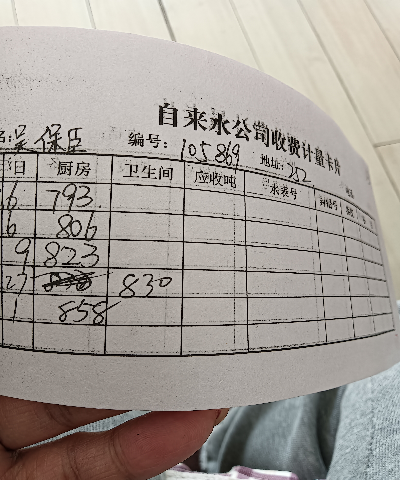 自来水公司收费计量卡片
名:吴保臣 编号:105869 地址:252
日 厨房 卫生间 应收吨 水表号
6 793
6 806
9 823
27 830
1 858